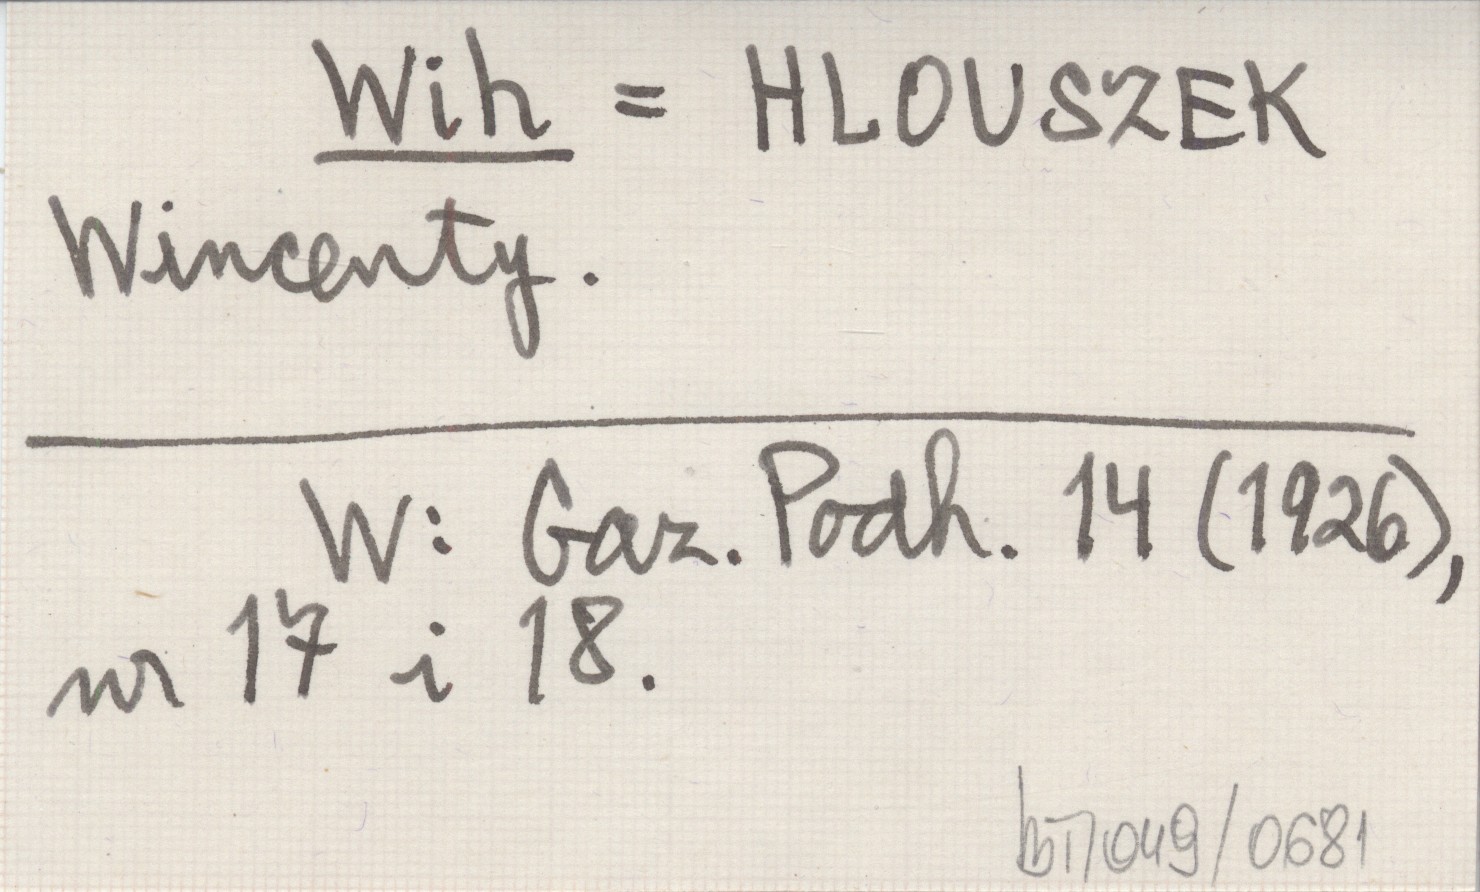 Wih = HLOUSZEK
Wincenty.
W: Gaz. Podh. 14 (1926),
nr 17 i 18.
049/0681